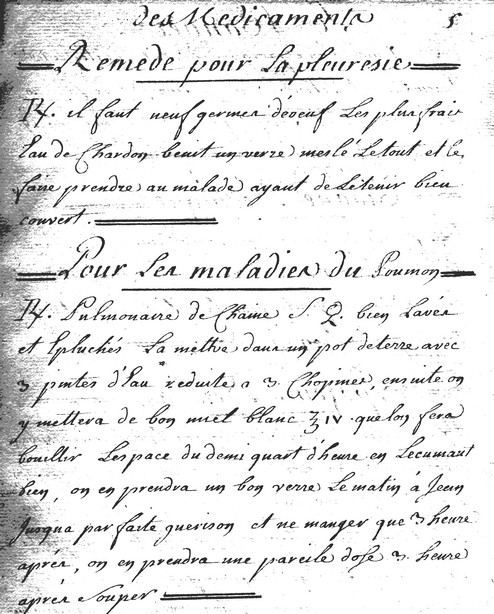 des Medicaments 5
Remede pour La pleuresie
R. il faut neuf germes doeuf Les plus frais
Eau de Chardon benit un verre meslé Le tout et le
faire prendre au malade ayant de Letenir bien
couvert.
Pour Les maladies du Poumon
R. Pulmonaire de Chaine S. Q. bien Lavéz
et Epluchés La mettre dans un pot de terre avec
3 pintes d'Eau reduite a 3 Chopines, ensuite on
y mettera de bon miel blanc ℥ IV. que lon fera
bouillir Lespace du demi quart d'heure en Lecumant
bien, on en prendra un bon verre Le matin à Jeun
Jusqua parfaite guerison et ne manger que 3 heure
aprés, on en prendra une pareile dose 3 heure
aprés Souper